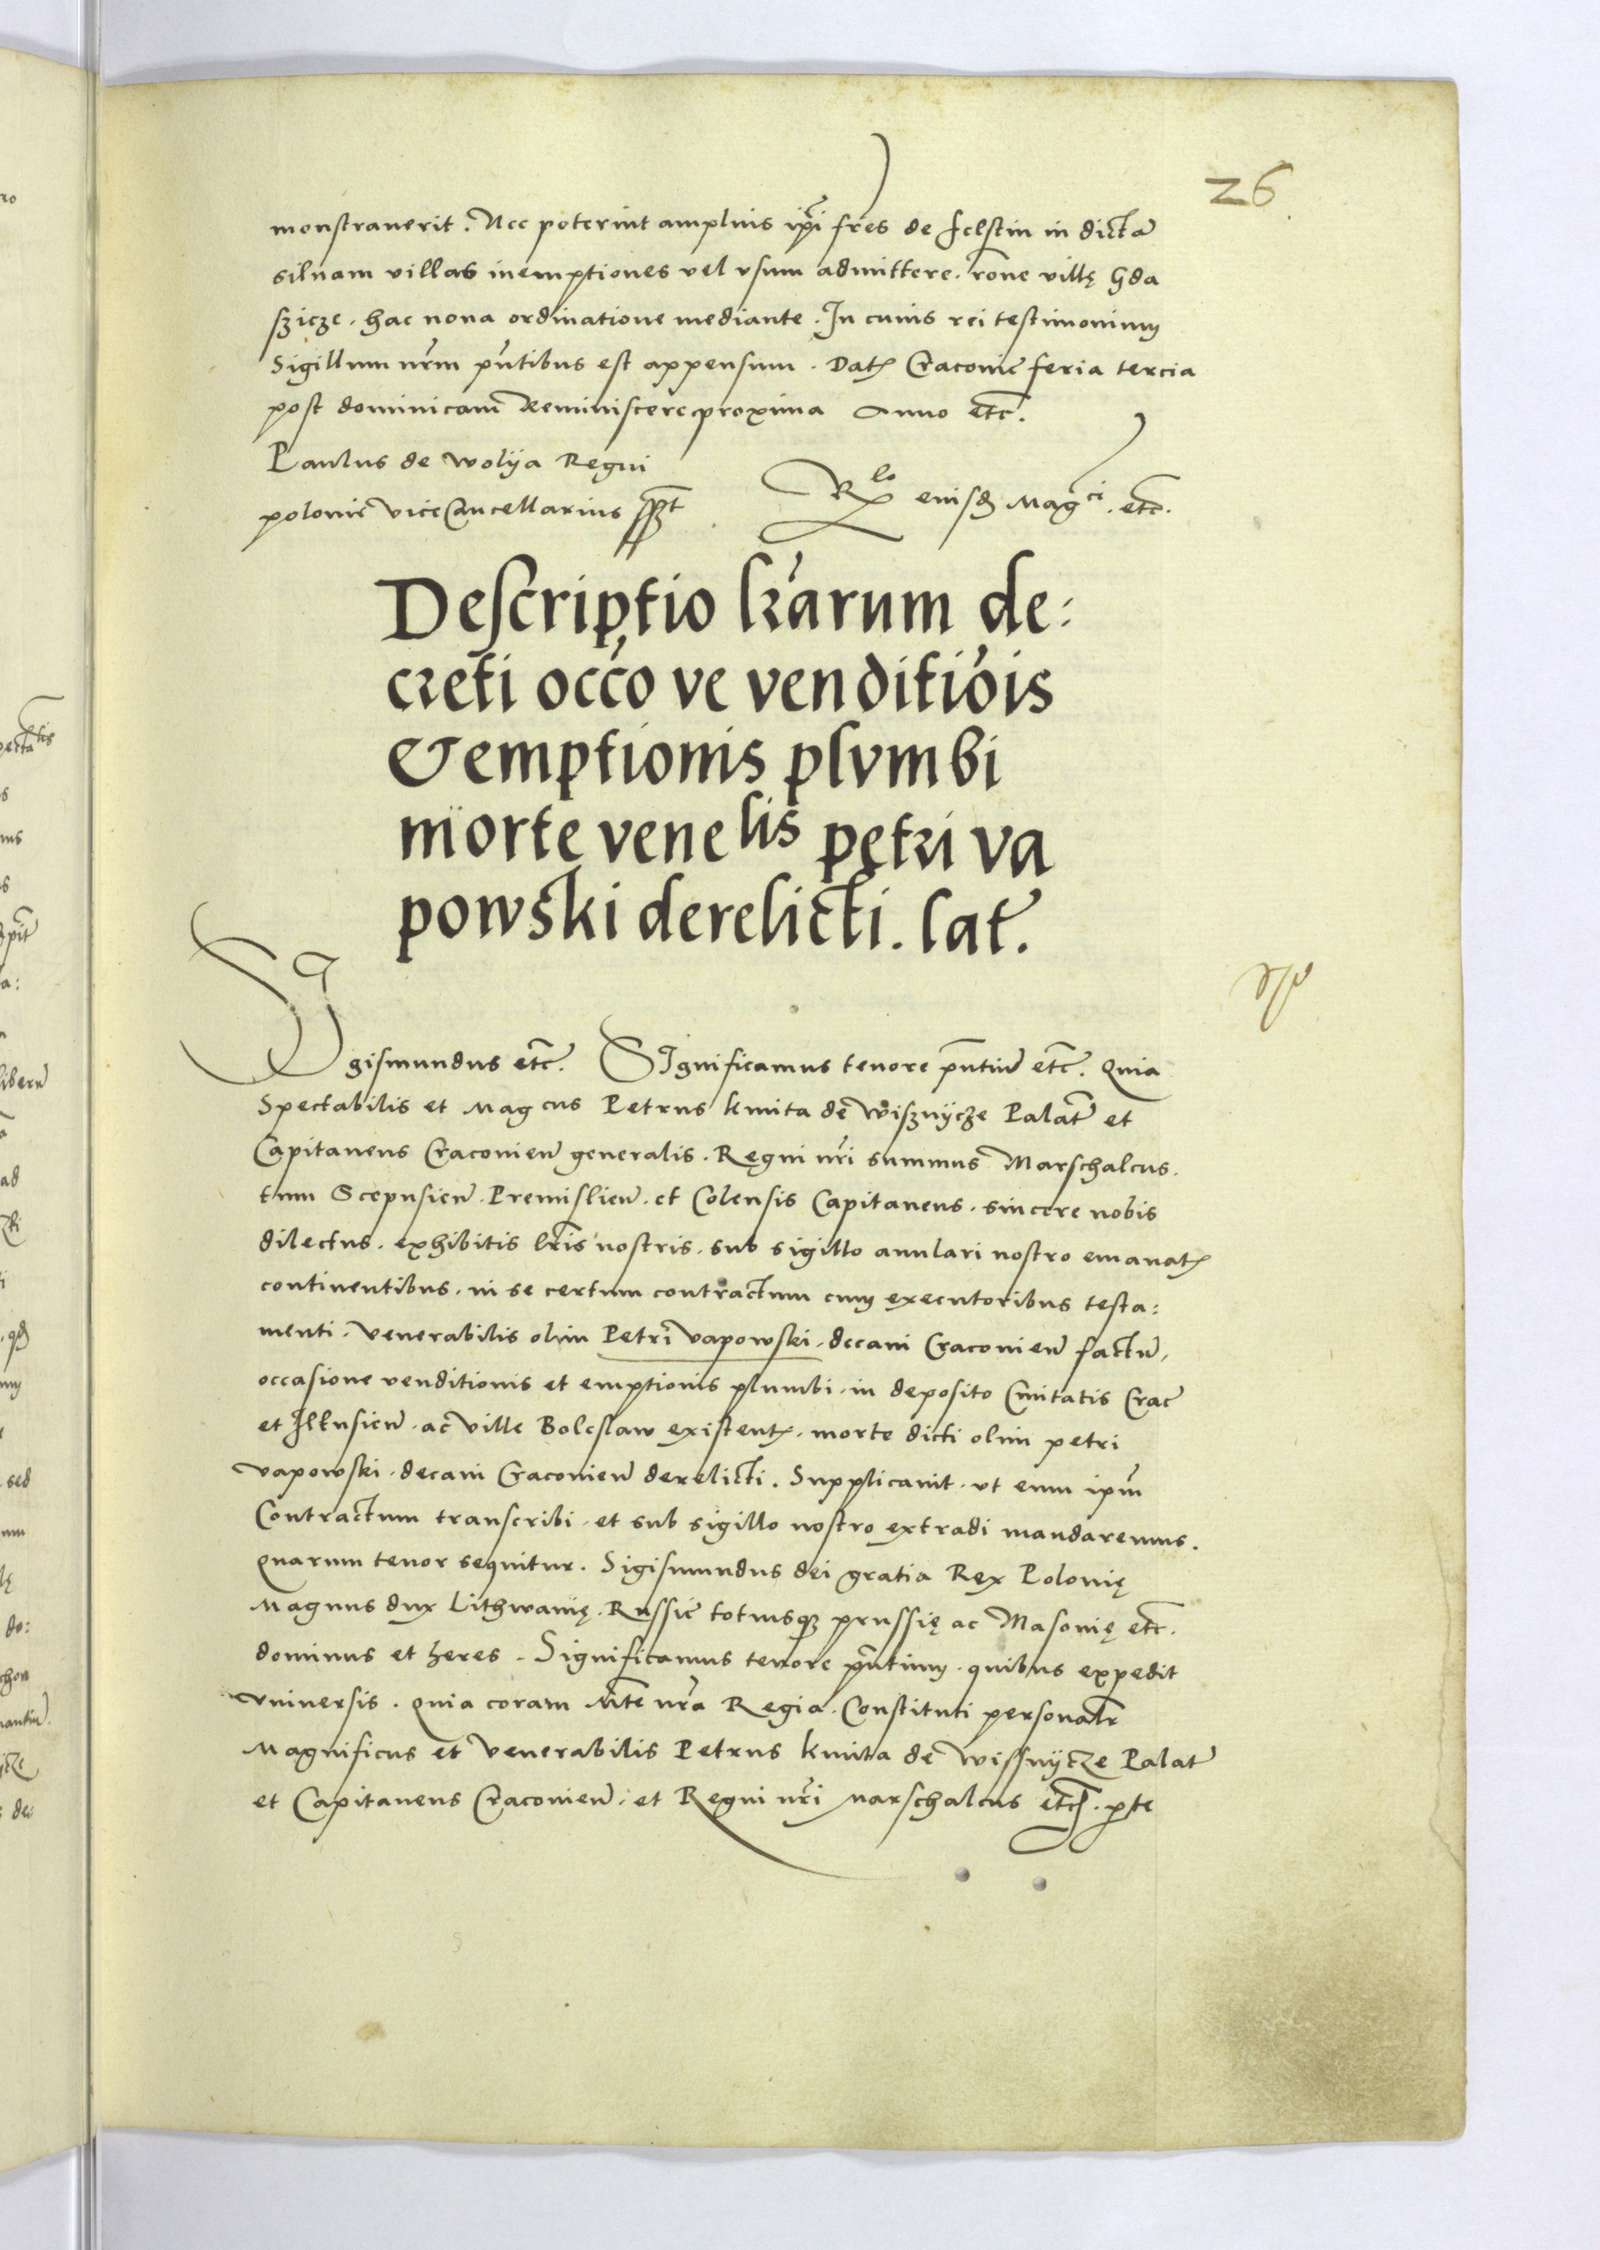 26
monstraverit. Nec poterint amplius ip̃i fr̃es de felstin in dictã
siluam villas inemptiones vel vsum admittere. rõne villę Gda
szicze. hac noua ordinatione mediante. In cuius rei testimonium
Sigillum nr̃m pñtibus est appensum. Dat. Cracouię feria tercia
post dominicam Reminiscere proxima Anno etc̃.
Paulus de wolija Regni
polonię vice Cancellarius sszt
Rlo eiusd Magci. etc.
Descriptio lr̃arum de:
creti occõ ve venditiõis
& emptionis plvmbi
morte venelis petri va
powski derelicti. lat.
Sigismundus etc̃. SIgnificamus tenore pñtiũ etc̃. Quia
Spectabilis et Mag cus Petrus kmita de wisznijcze Palat̃ et
Capitaneus Cracovieñ generalis. Regni nr̃i summus Marschalcus.
tum Scepusieñ. Premislieñ. et Colensis Capitaneus. sincere nobis
dilectus. exhibitis lr̃is nostris. sub sigillo anulari nostro emanat.
continentibus. in se certum contractum cum executoribus testa:
menti. venerabilis olim Petri vapowski. decani Cracovieñ factũ,
occasione venditionis et emptionis plumbi. in deposito Ciuitatis Crac̃
et Ilkusieñ. ac ville Boleslaw existent. morte dicti olim petri
vapowski. decani Cracovieñ derelicti. Supplicauit. ut eum ipm̃
Contractum transcribi. et sub sigillo nostro extradi mandaremus.
Quarum tenor sequitur. Sigismundus dei gratia Rex Polonię
Magnus dux Lithwanię. Russię totiusq̃ prussię ac Masouię etc̃.
dominus et heres. Significamus tenore pñtium. quibus expedit
vniuersis. Quia coram Mte nr̃a Regia. Constituti personalr̃
Magnificus et Venerabilis Petrus kmita de wissnijcze Palat̃
et Capitaneus Cracovieñ. et Regni nr̃i Marschalcus etc̃. pte